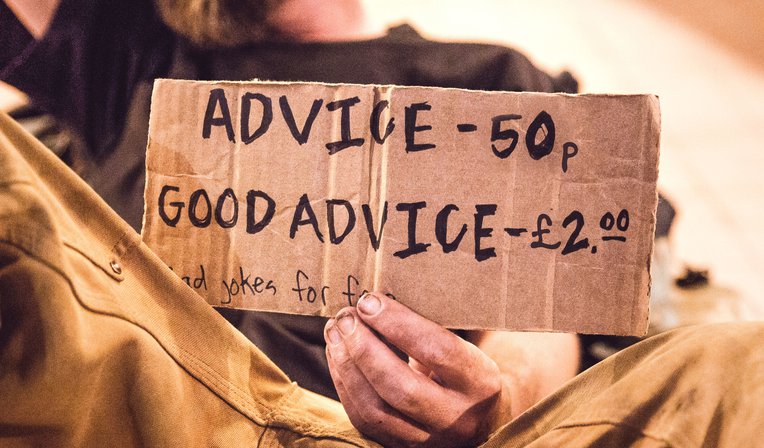 ADVICE - 50p
GOOD ADVICE - £2.00
jokes for